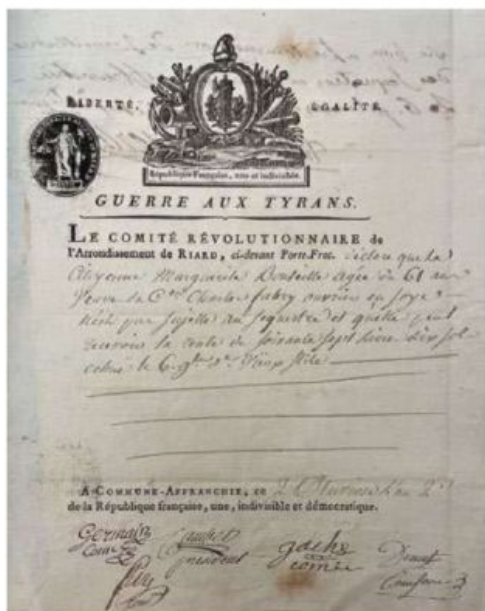 LIBERTÉ, ÉGALITÉ
République Française, une et indivisible.
GUERRE AUX TYRANS.
LE COMITÉ RÉVOLUTIONNAIRE de
l'Arrondissement de RIARD, ci-devant Porte-Froc. déclare que la
Citoyenne Marguerite agée de 61 ans
Veuve de C.en Charles fabry ouvrier en soye
n'est pas sujette au sequestre et quelle peut
recevoir la rente de soixante sept livre dix sol
echue le 6. 9bre Vieux stile
A COMMUNE-AFFRANCHIE, ce 2 l'an 2.
de la République française, une, indivisible et démocratique.
Germain
président
comre